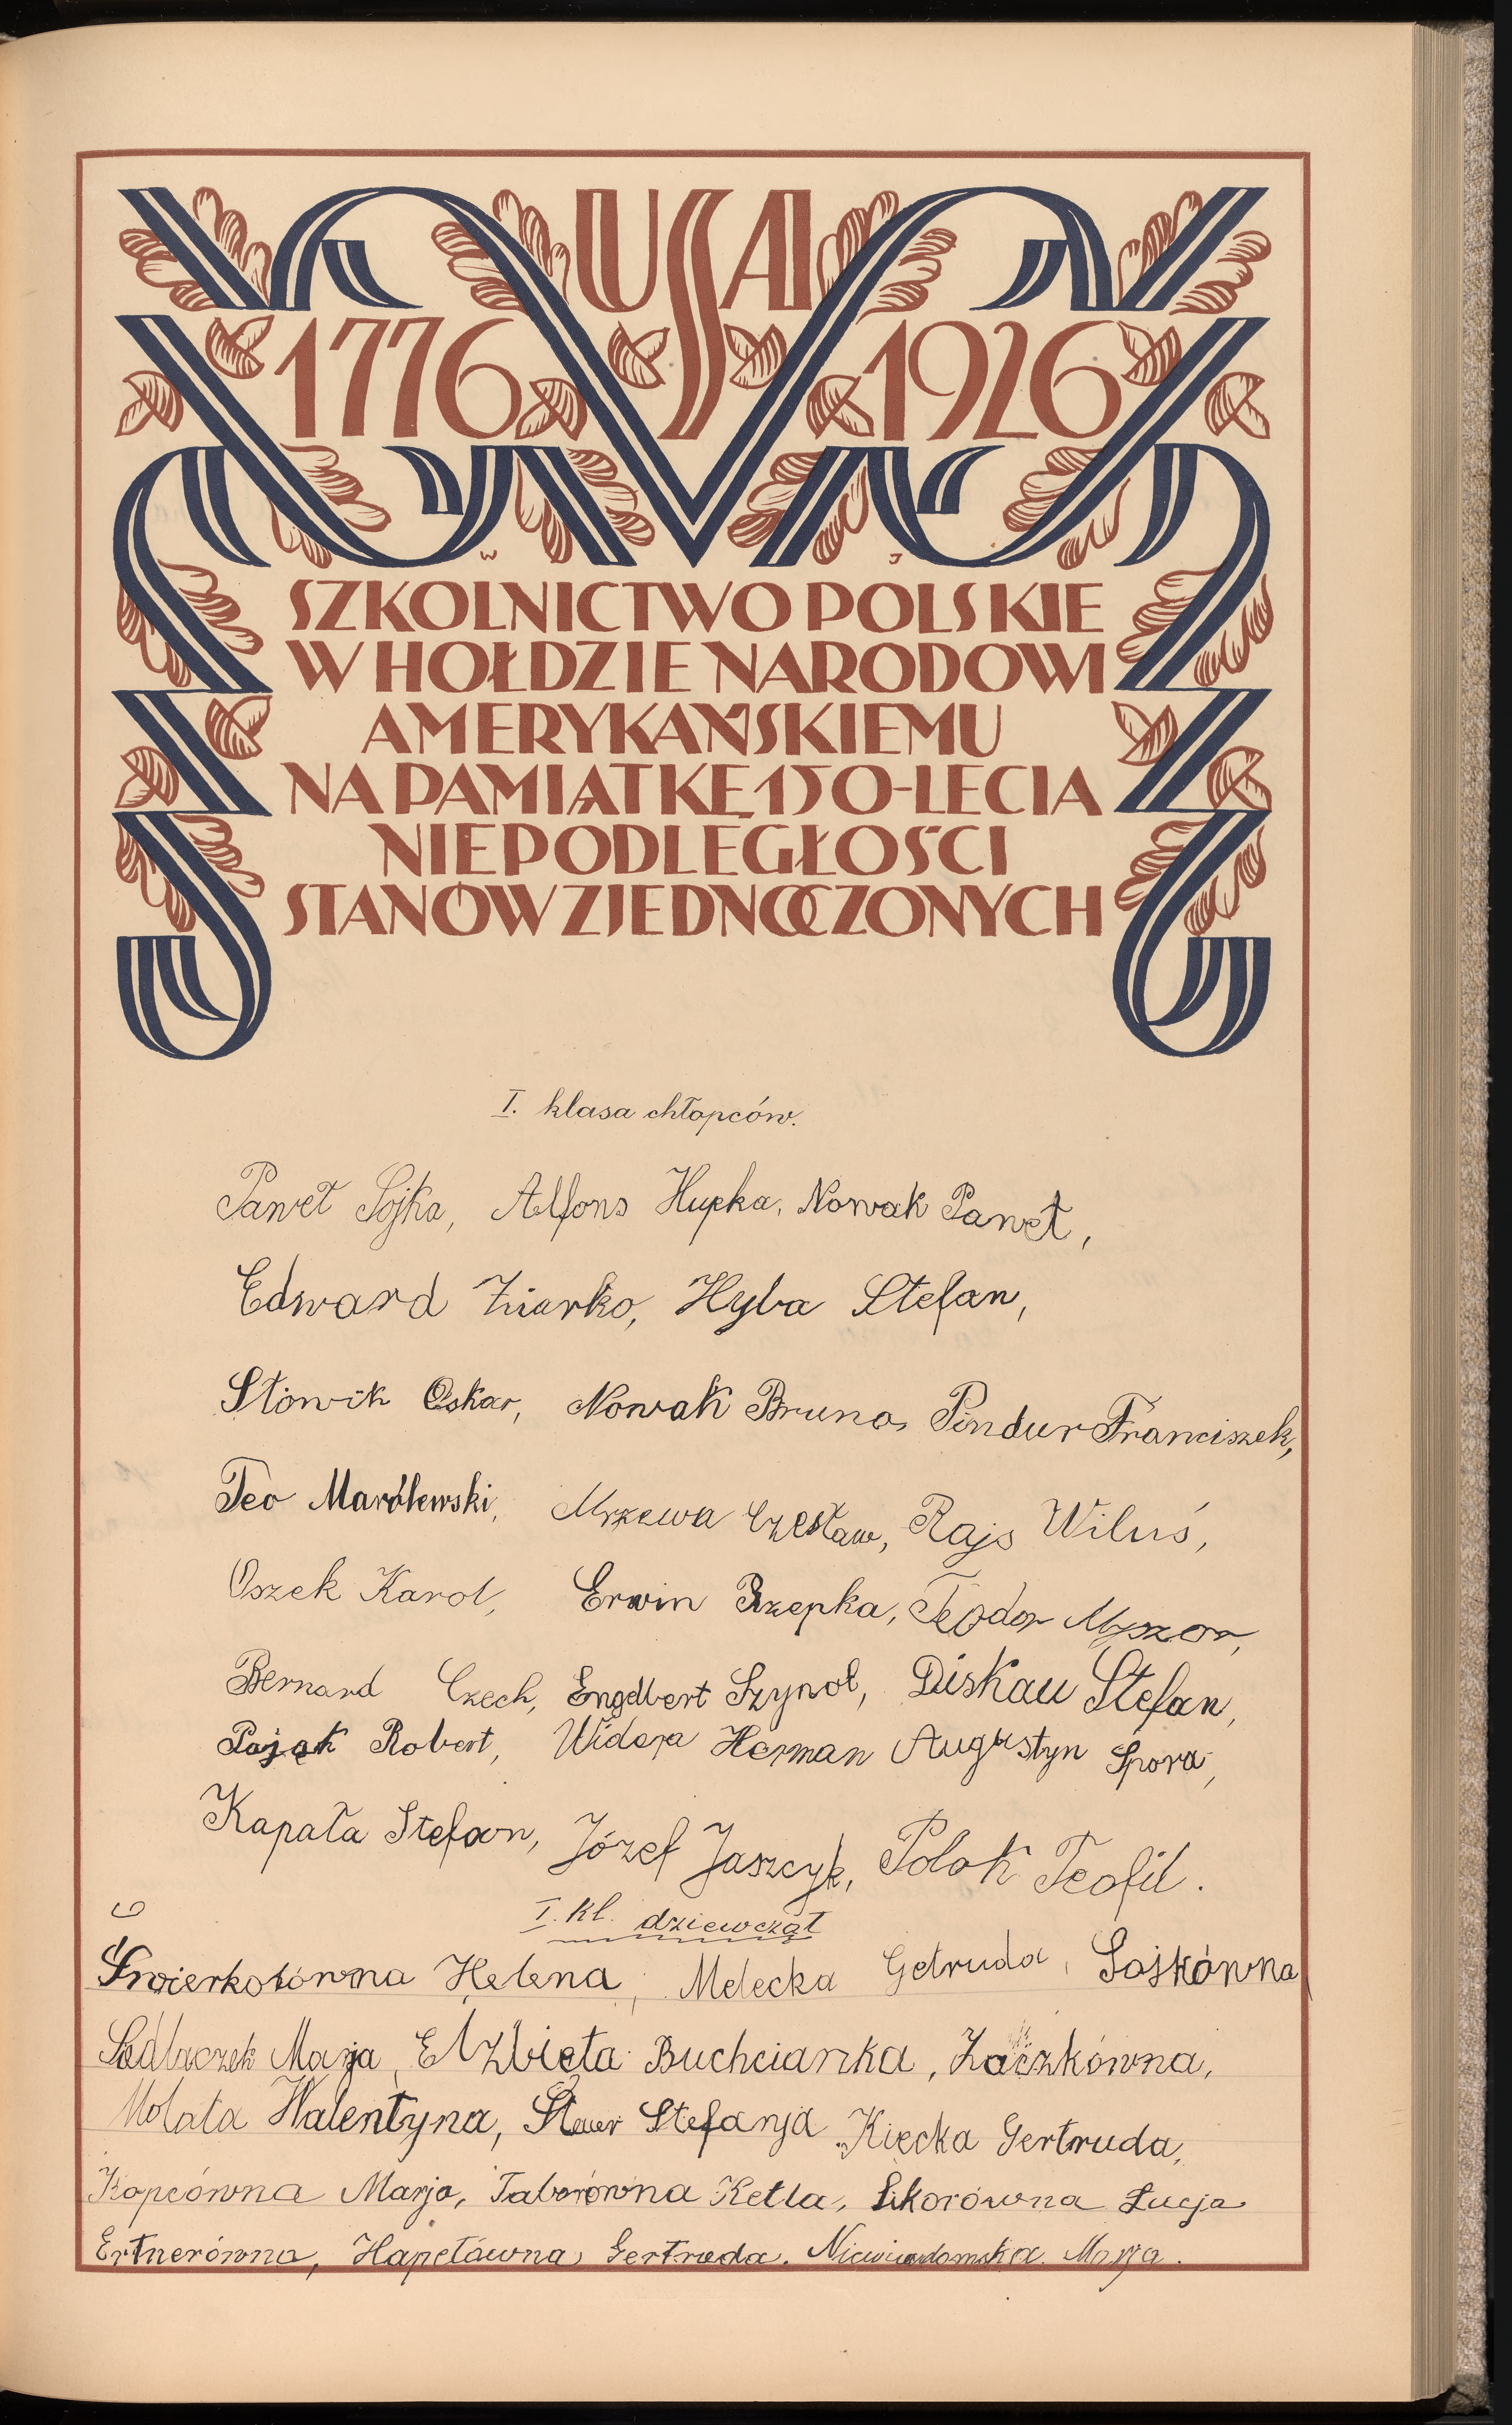 USA
1776 1926
W J
SZKOLNICTWO POLSKIE
W HOŁDZIE NARODOWI
AMERYKAŃSKIEMU
NA PAMIĄTKĘ 150-LECIA
NIEPODLEGŁOŚCI
STANÓW ZJEDNOCZONYCH
I. klasa chłopców.
Paweł Sojka, Alfons Hupka, Nowak Paweł,
Edward Ziarko, Hyba Stefan,
Słowik Oskar, Nowak Bruno, Pindur Franciszek,
Teo Marólewski, Mrzewa Czesław, Rajs Wiluś,
Oszek Karol, Erwin Rzepka, Teodor Myszor,
Bernard Czech, Engelbert Szynol, Diskau Stefan,
Pająk Robert, Widera Herman Augustyn Spora,
Kapała Stefan, Józef Jaszczyk, Polok Teofil.
I. kl. dziewcząt
Świerkotówna Helena, Melecka Getruda, Sojkówna
Sedlaczek Marja, Elżbieta Buchcianka, Zaczkówna,
Molata Walentyna, Stewer Stefanja Kięcka Gertruda,
Kopcówna Marja, Taborówna Ketla, Sikorówna Łucja
Ertnerówna, Hapetówna, Gertruda. Niewiadomska Marja.